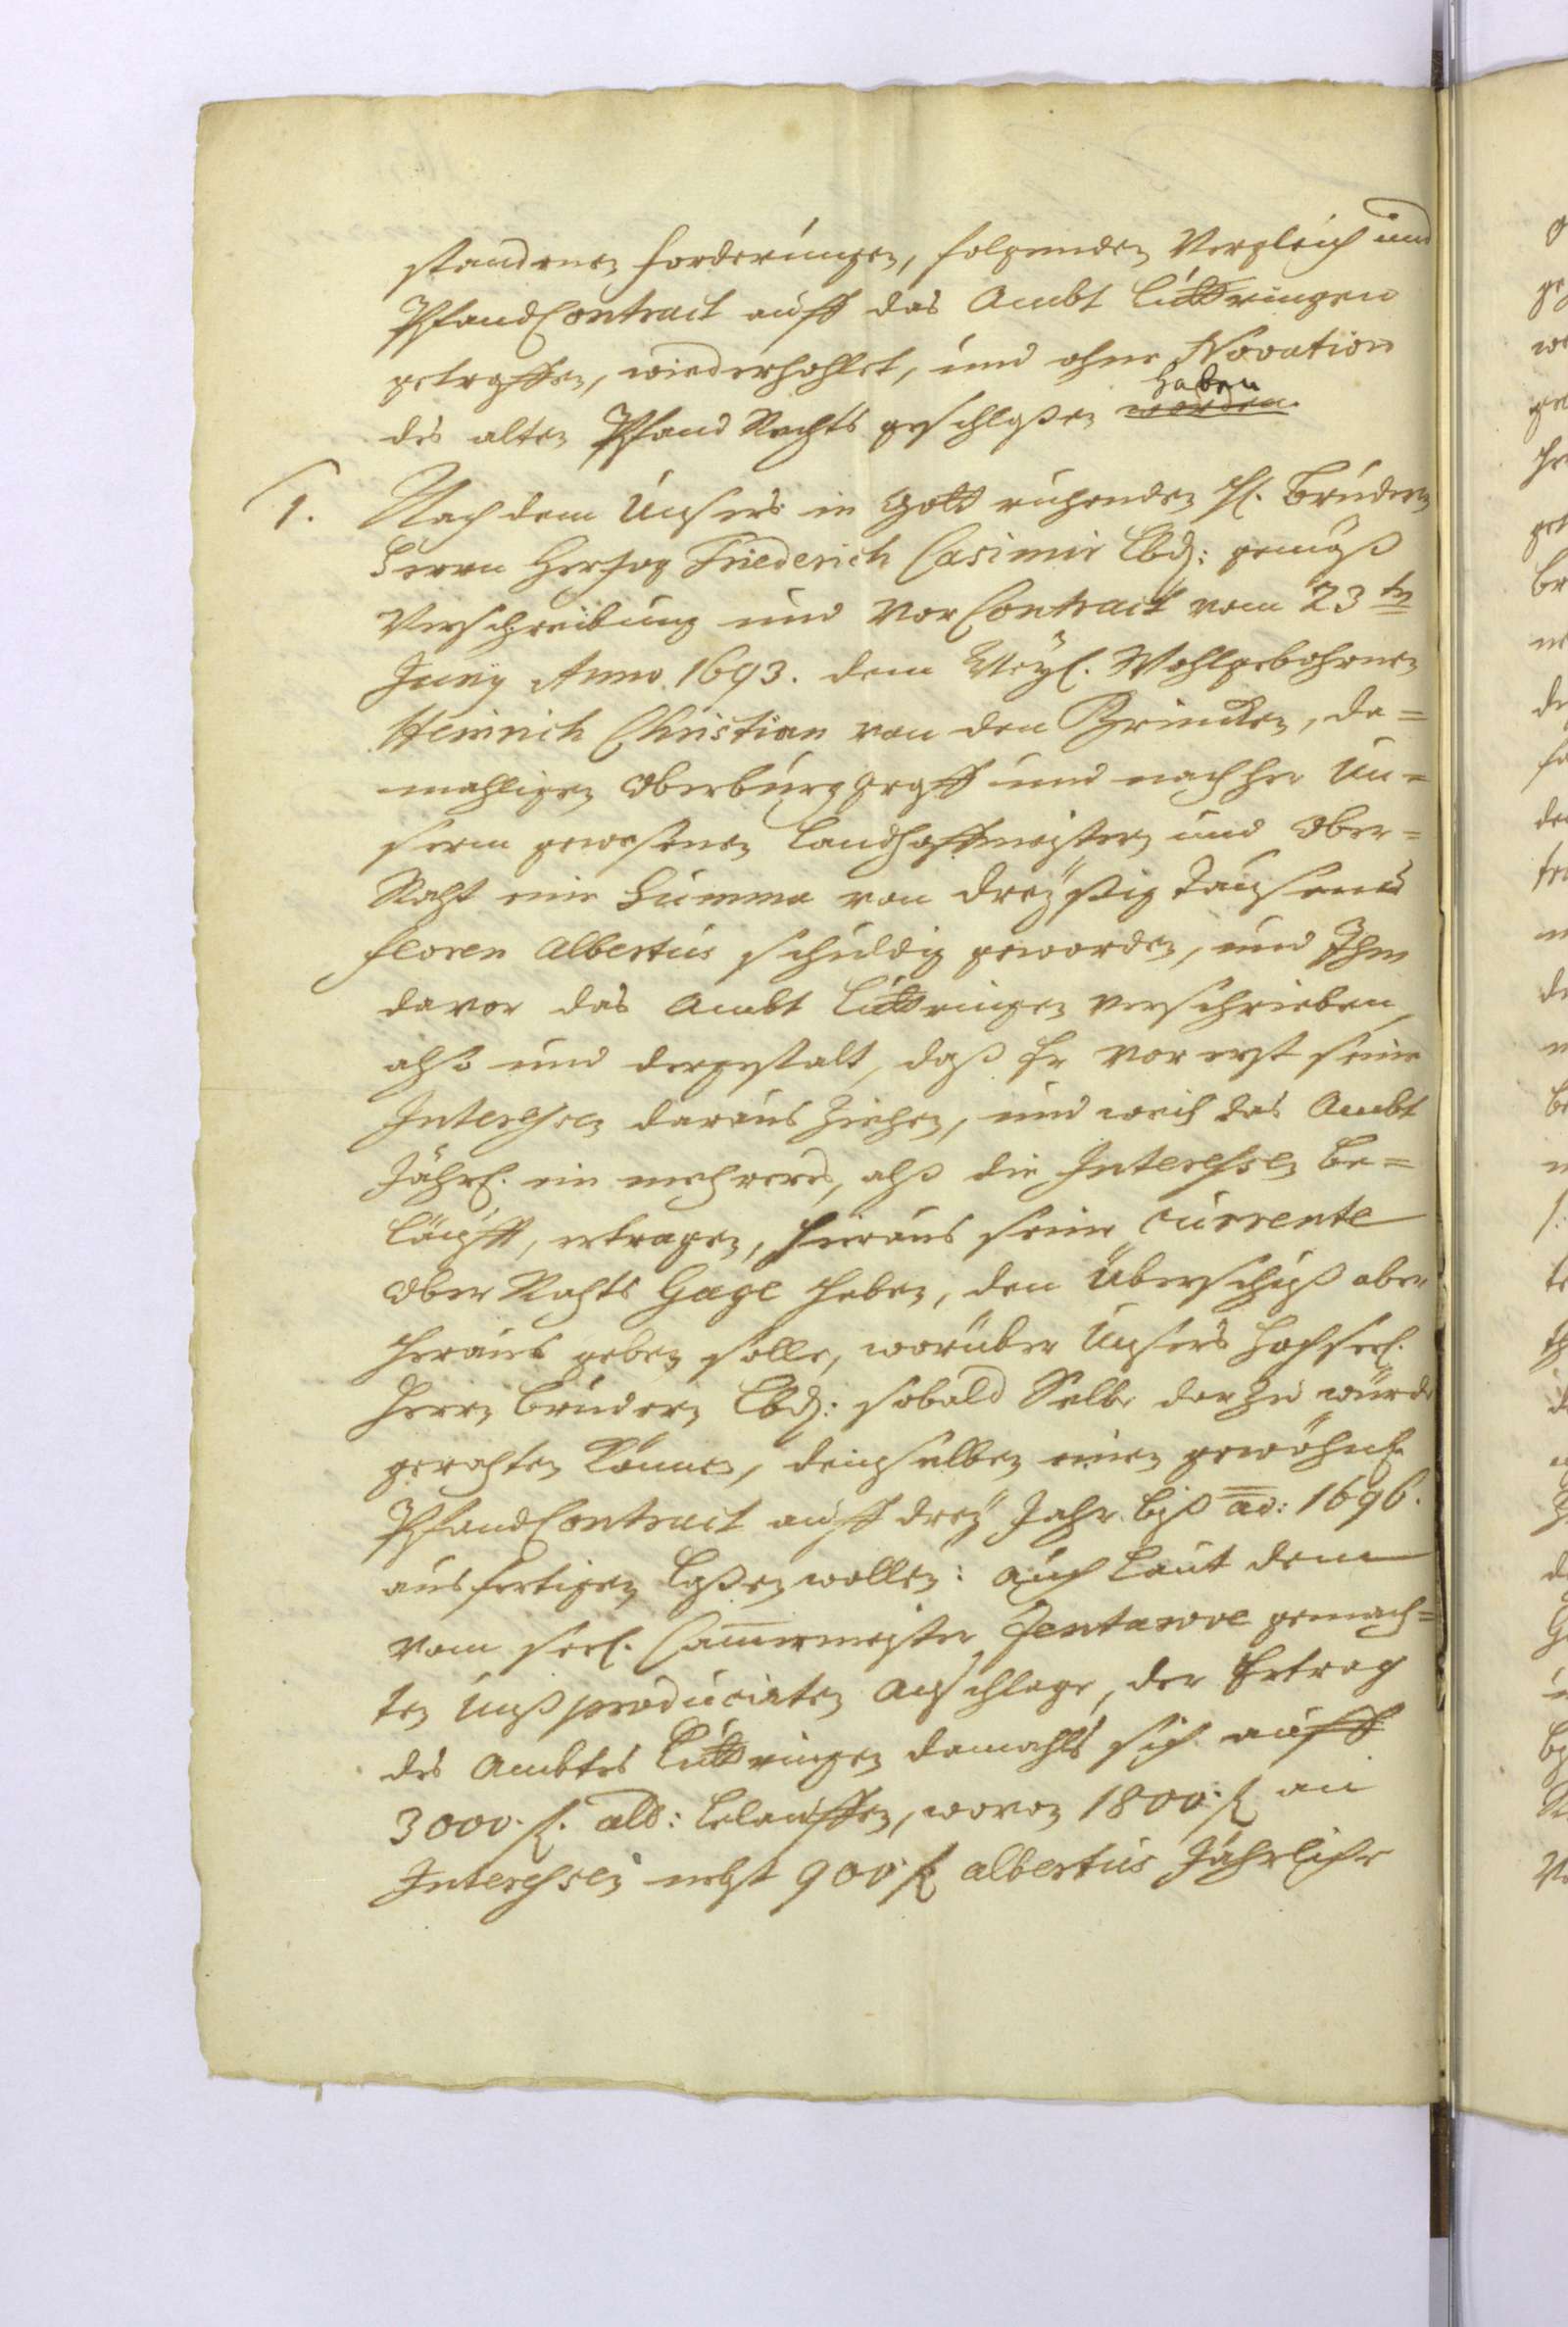 standenen forderungen, folgenden Vergleich und
PfandContract auff das Ambt Luttringen
getroffen, wiederhohlet, und ohne Novation
des alten Pfand Rechts geschloßen haben
worden.
1. Nach dem Unsers in Gott ruhenden H. Brudern
Herrn Hertzog Friederich Casimir Lbd: gemäß
Verschreibung und VorContract vom 23 ten
Juny Anno 1693. dem Weyl. Wohlgebohrnen
Heinrich Christian von den Brincken, da=
mahligen Oberburggraff und nachher Un=
serm gewesenen Landhoffmeistern und Ober=
Raht eine Summa von dreyßig Tausend
floren Albertus schuldig geworden, und Ihm
davor das Ambt Luttringen verschrieben,
alß und dergestalt, daß Er vorerst seine
Interessen daraus ziehen, und weil das Ambt
Jährl. ein mehreres, alß die Interessen be=
läufft, ertragen, hieraus seine currente
Ober Rahts Gage heben, den Überschuß aber
heraus geben solle, worüber Unsers Hochseel.
Herrn Brudern Lbd: sobald Selbe darzu würde
gerahten können, demselben einen gewöhnl.
PfandContract auff drey Jahr biß ao: 1696.
ausfertigen laßen wollen: Auch laut dem
vom seel. Cammermeister Fentarove gemach=
ten Unß producirten Anschlage, der Ertrag
des Ambtes Luttringen damahls sich auff
3000. fl. alb: belauffen, wovon 1800. fl an
Interessen nebst 900 fl albertus Jährliche